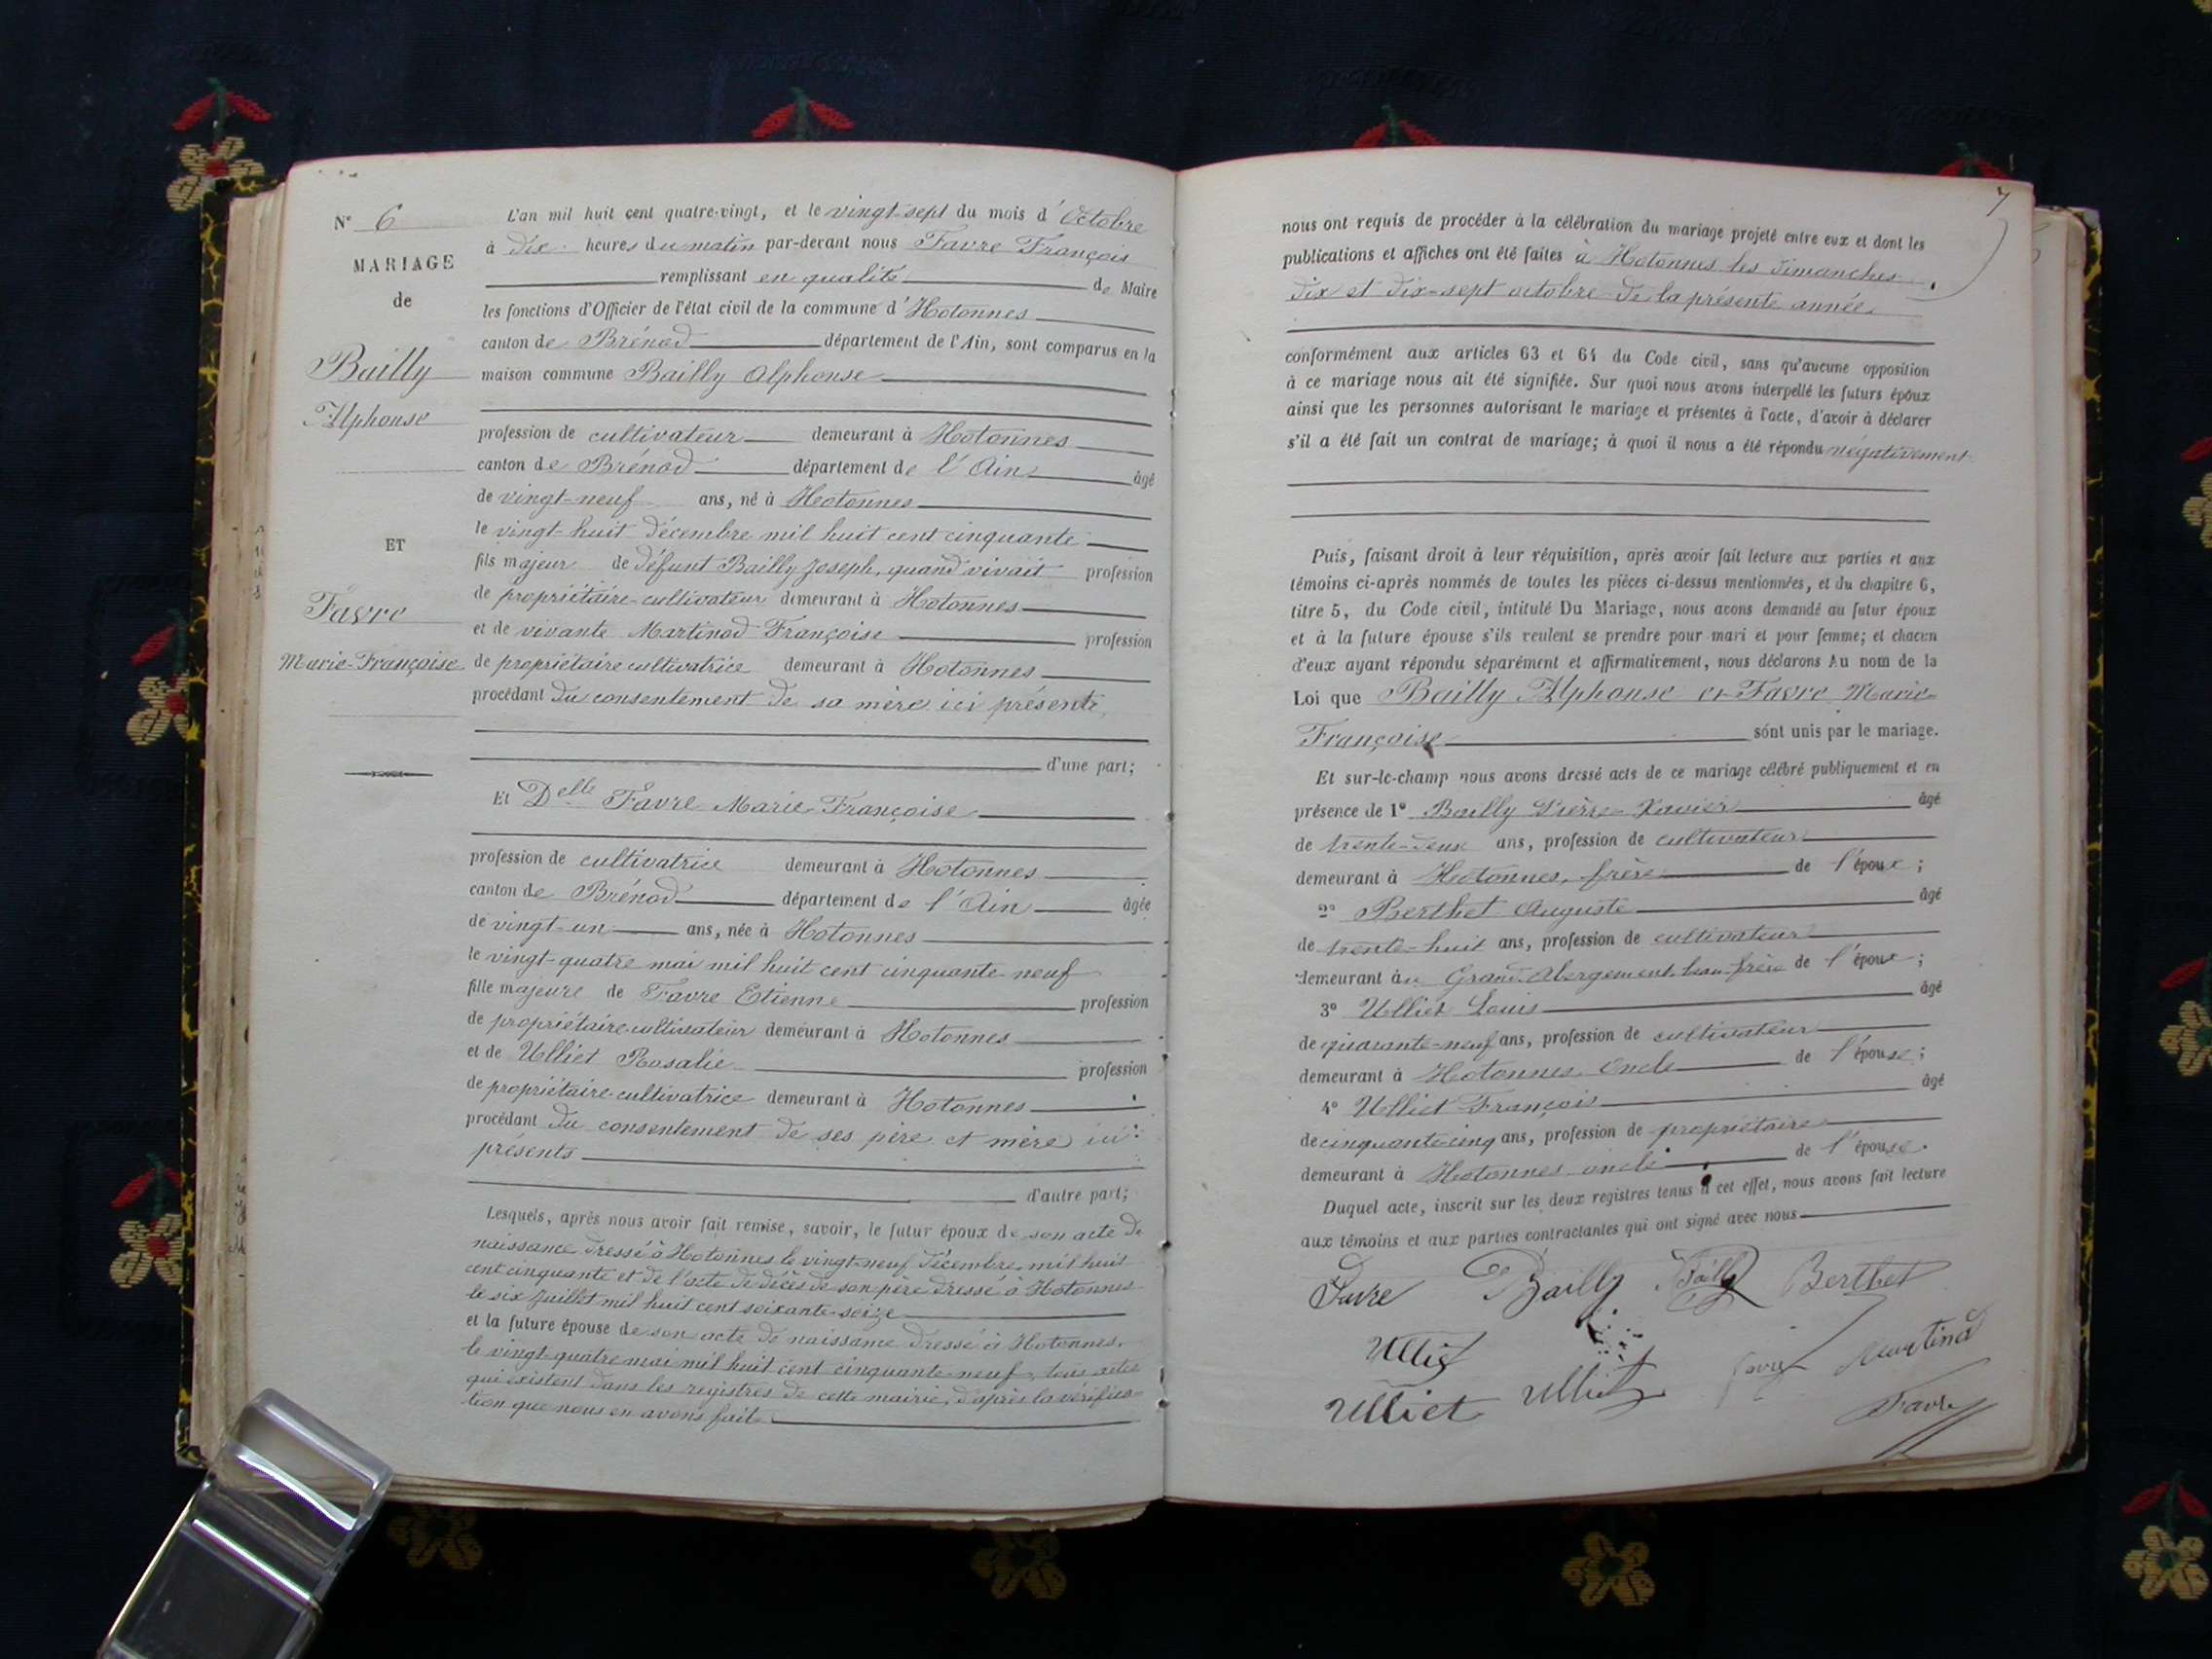 N° 6
MARIAGE
de
Bailly
Alphonse
ET
Favre
Marie-Françoise
L'an mil huit cent quatre-vingt, et le vingt-sept du mois d'Octobre
à dix heures du matin par-devant nous Favre François
remplissant en qualité de Maire
les fonctions d'Officier de l'état civil de la commune d'Hotonnes
canton de Brénod département de l'Ain, sont comparus en la
maison commune Bailly Alphonse
profession de cultivateur demeurant à Hotonnes
canton de Brénod département de l'Ain âgé
de vingt-neuf ans, né à Hotonnes
le vingt-huit décembre mil huit cent cinquante
fils majeur de défunt Bailly Joseph, quand vivait profession
de propriétaire-cultivateur demeurant à Hotonnes
et de vivante Martinod Françoise profession
de propriétaire cultivatrice demeurant à Hotonnes
procédant du consentement de sa mère ici présente
d'une part;
Et Delle Favre Marie-Françoise
profession de cultivatrice demeurant à Hotonnes
canton de Brénod département de l'Ain âgée
de vingt-un ans, née à Hotonnes
le vingt-quatre mai mil huit cent cinquante-neuf
fille majeure de Favre Etienne profession
de propriétaire-cultivateur demeurant à Hotonnes
et de Ulliet Rosalie profession
de propriétaire-cultivatrice demeurant à Hotonnes
procédant du consentement de ses père et mère ici
présents
d'autre part;
Lesquels, après nous avoir fait remise, savoir, le futur époux de son acte de
naissance dressé à Hotonnes le vingt-neuf décembre mil huit
cent cinquante et de l'acte de décès de son père dressé à Hotonnes
le six juillet mil huit cent soixante-seize
et la future épouse de son acte de naissance dressé à Hotonnes,
le vingt-quatre mai mil huit cent cinquante-neuf, tous actes
qui existent dans les registres de cette mairie, d'après la vérifica-
tion que nous en avons faite
7
nous ont requis de procéder à la célébration du mariage projeté entre eux et dont les
publications et affiches ont été faites à Hotonnes les dimanches
dix et dix-sept octobre de la présente année
conformément aux articles 63 et 64 du Code civil, sans qu'aucune opposition
à ce mariage nous ait été signifiée. Sur quoi nous avons interpellé les futurs époux
ainsi que les personnes autorisant le mariage et présentes à l'acte, d'avoir à déclarer
s'il a été fait un contrat de mariage; à quoi il nous a été répondu négativement
Puis, faisant droit à leur réquisition, après avoir fait lecture aux parties et aux
témoins ci-après nommés de toutes les pièces ci-dessus mentionnées, et du chapitre 6,
titre 5, du Code civil, intitulé Du Mariage, nous avons demandé au futur époux
et à la future épouse s'ils veulent se prendre pour mari et pour femme; et chacun
d'eux ayant répondu séparément et affirmativement, nous déclarons Au nom de la
Loi que Bailly Alphonse et Favre Marie-
Françoise sont unis par le mariage.
Et sur-le-champ nous avons dressé acte de ce mariage célébré publiquement et en
présence de 1° Bailly Pierre-Xavier âgé
de trente-deux ans, profession de cultivateur
demeurant à Hotonnes, frère de l'époux;
2° Berthet Auguste âgé
de trente-huit ans, profession de cultivateur
demeurant au Grand-Abergement beau-frère de l'époux;
3° Ulliet Louis âgé
de quarante-neuf ans, profession de cultivateur
demeurant à Hotonnes, oncle de l'épouse;
4° Ulliet François âgé
de cinquante-cinq ans, profession de propriétaire
demeurant à Hotonnes oncle de l'épouse.
Duquel acte, inscrit sur les deux registres tenus à cet effet, nous avons fait lecture
aux témoins et aux parties contractantes qui ont signé avec nous
Favre Bailly Bailly Berthet
Ulliet Favre Martinod
Ulliet Ulliet Favre